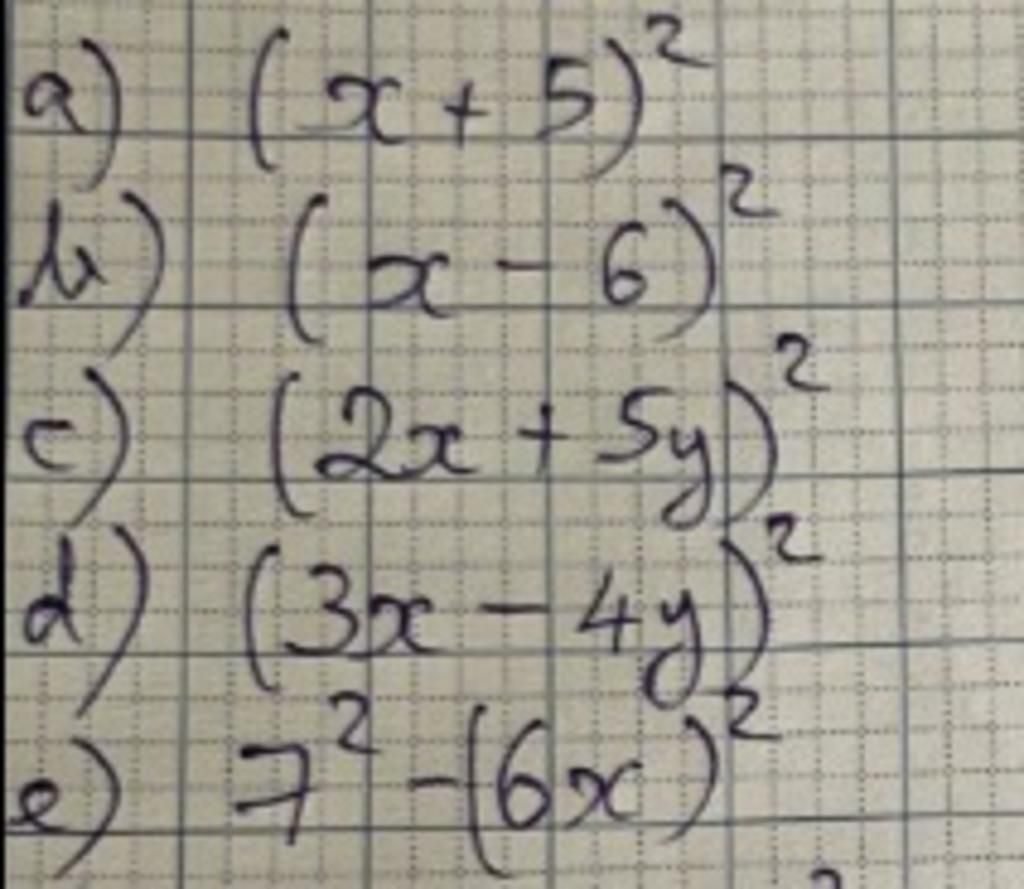 a) (x + 5)²
b) (x - 6)²
c) (2x + 5y)²
d) (3x - 4y)²
e) 7² - (6x)²